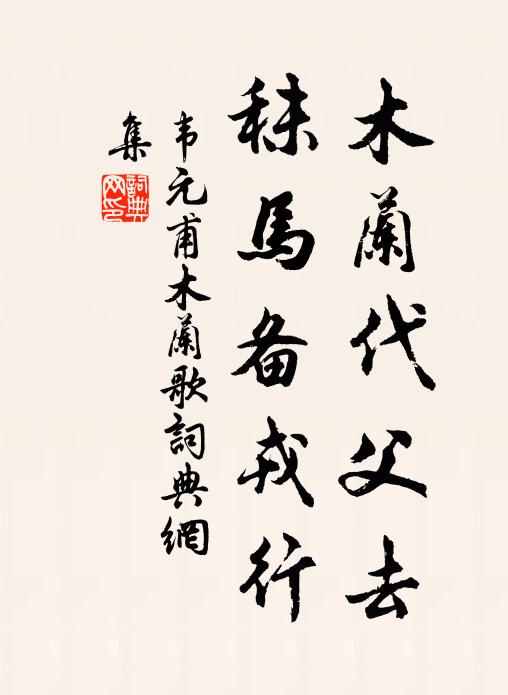 木蘭代父去
秣馬备戎行
韦元甫木蘭歌詞典網
集
詞典網印